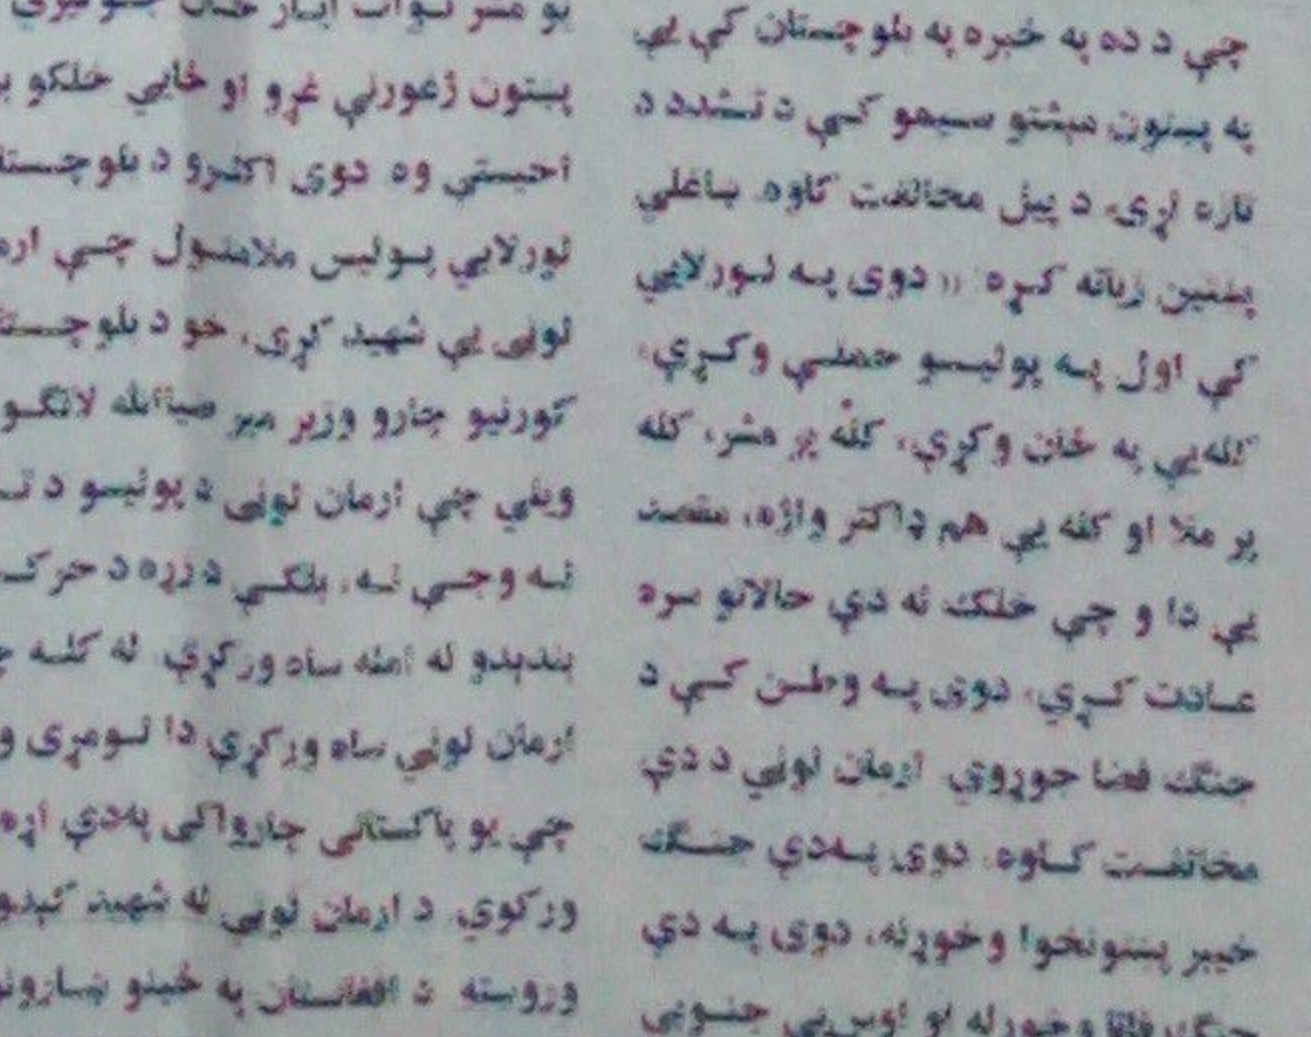 چې د ده په خبره په بلوچستان کې يې
په پښتون مېشتو سيمو کې د تشدد د
تازه لړۍ د پيل مخالفت کاوه. ښاغلي
پښتين زياته کړه: (( دوی په لورلايي
کې اول په پوليسو حملې وکړې،
کله يې په ځان وکړې، کله پر مشر، کله
پر ملا او کله يې هم ډاکټر واژه، مقصد
يې دا و چې خلک له دې حالاتو سره
عادت کړي، دوی په وطن کې د
جنګ فضا جوړوي. ارمان لوڼي د دې
مخالفت کاوه. دوی په دې جنګ
خيبر پښتونخوا وخوړله، دوی په دې
جنګ فاټا وخوړله او اوس يې جنوبي
يو مشر نواب اياز خان جوګېزی
پښتون ژغورنې غړو او ځايي خلکو
اخيستې وه. دوی اکثرو د
لورلايي پوليس ملامتول چې
لوڼی يې شهيد کړی، خو د
کورنيو چارو وزير مير ضياالله لانګو
ويلي چې ارمان لوڼی د پوليسو د
له وجې نه، بلکې د زړه د
بندېدو له امله ساه ورکړې. له کله
ارمان لوڼي ساه ورکړې دا لومړی
چې يو پاکستانی چارواکی په دې اړه
ورکوي. د ارمان لوڼي له شهيد کېدو
وروسته د افغانستان په ځينو ښارونو